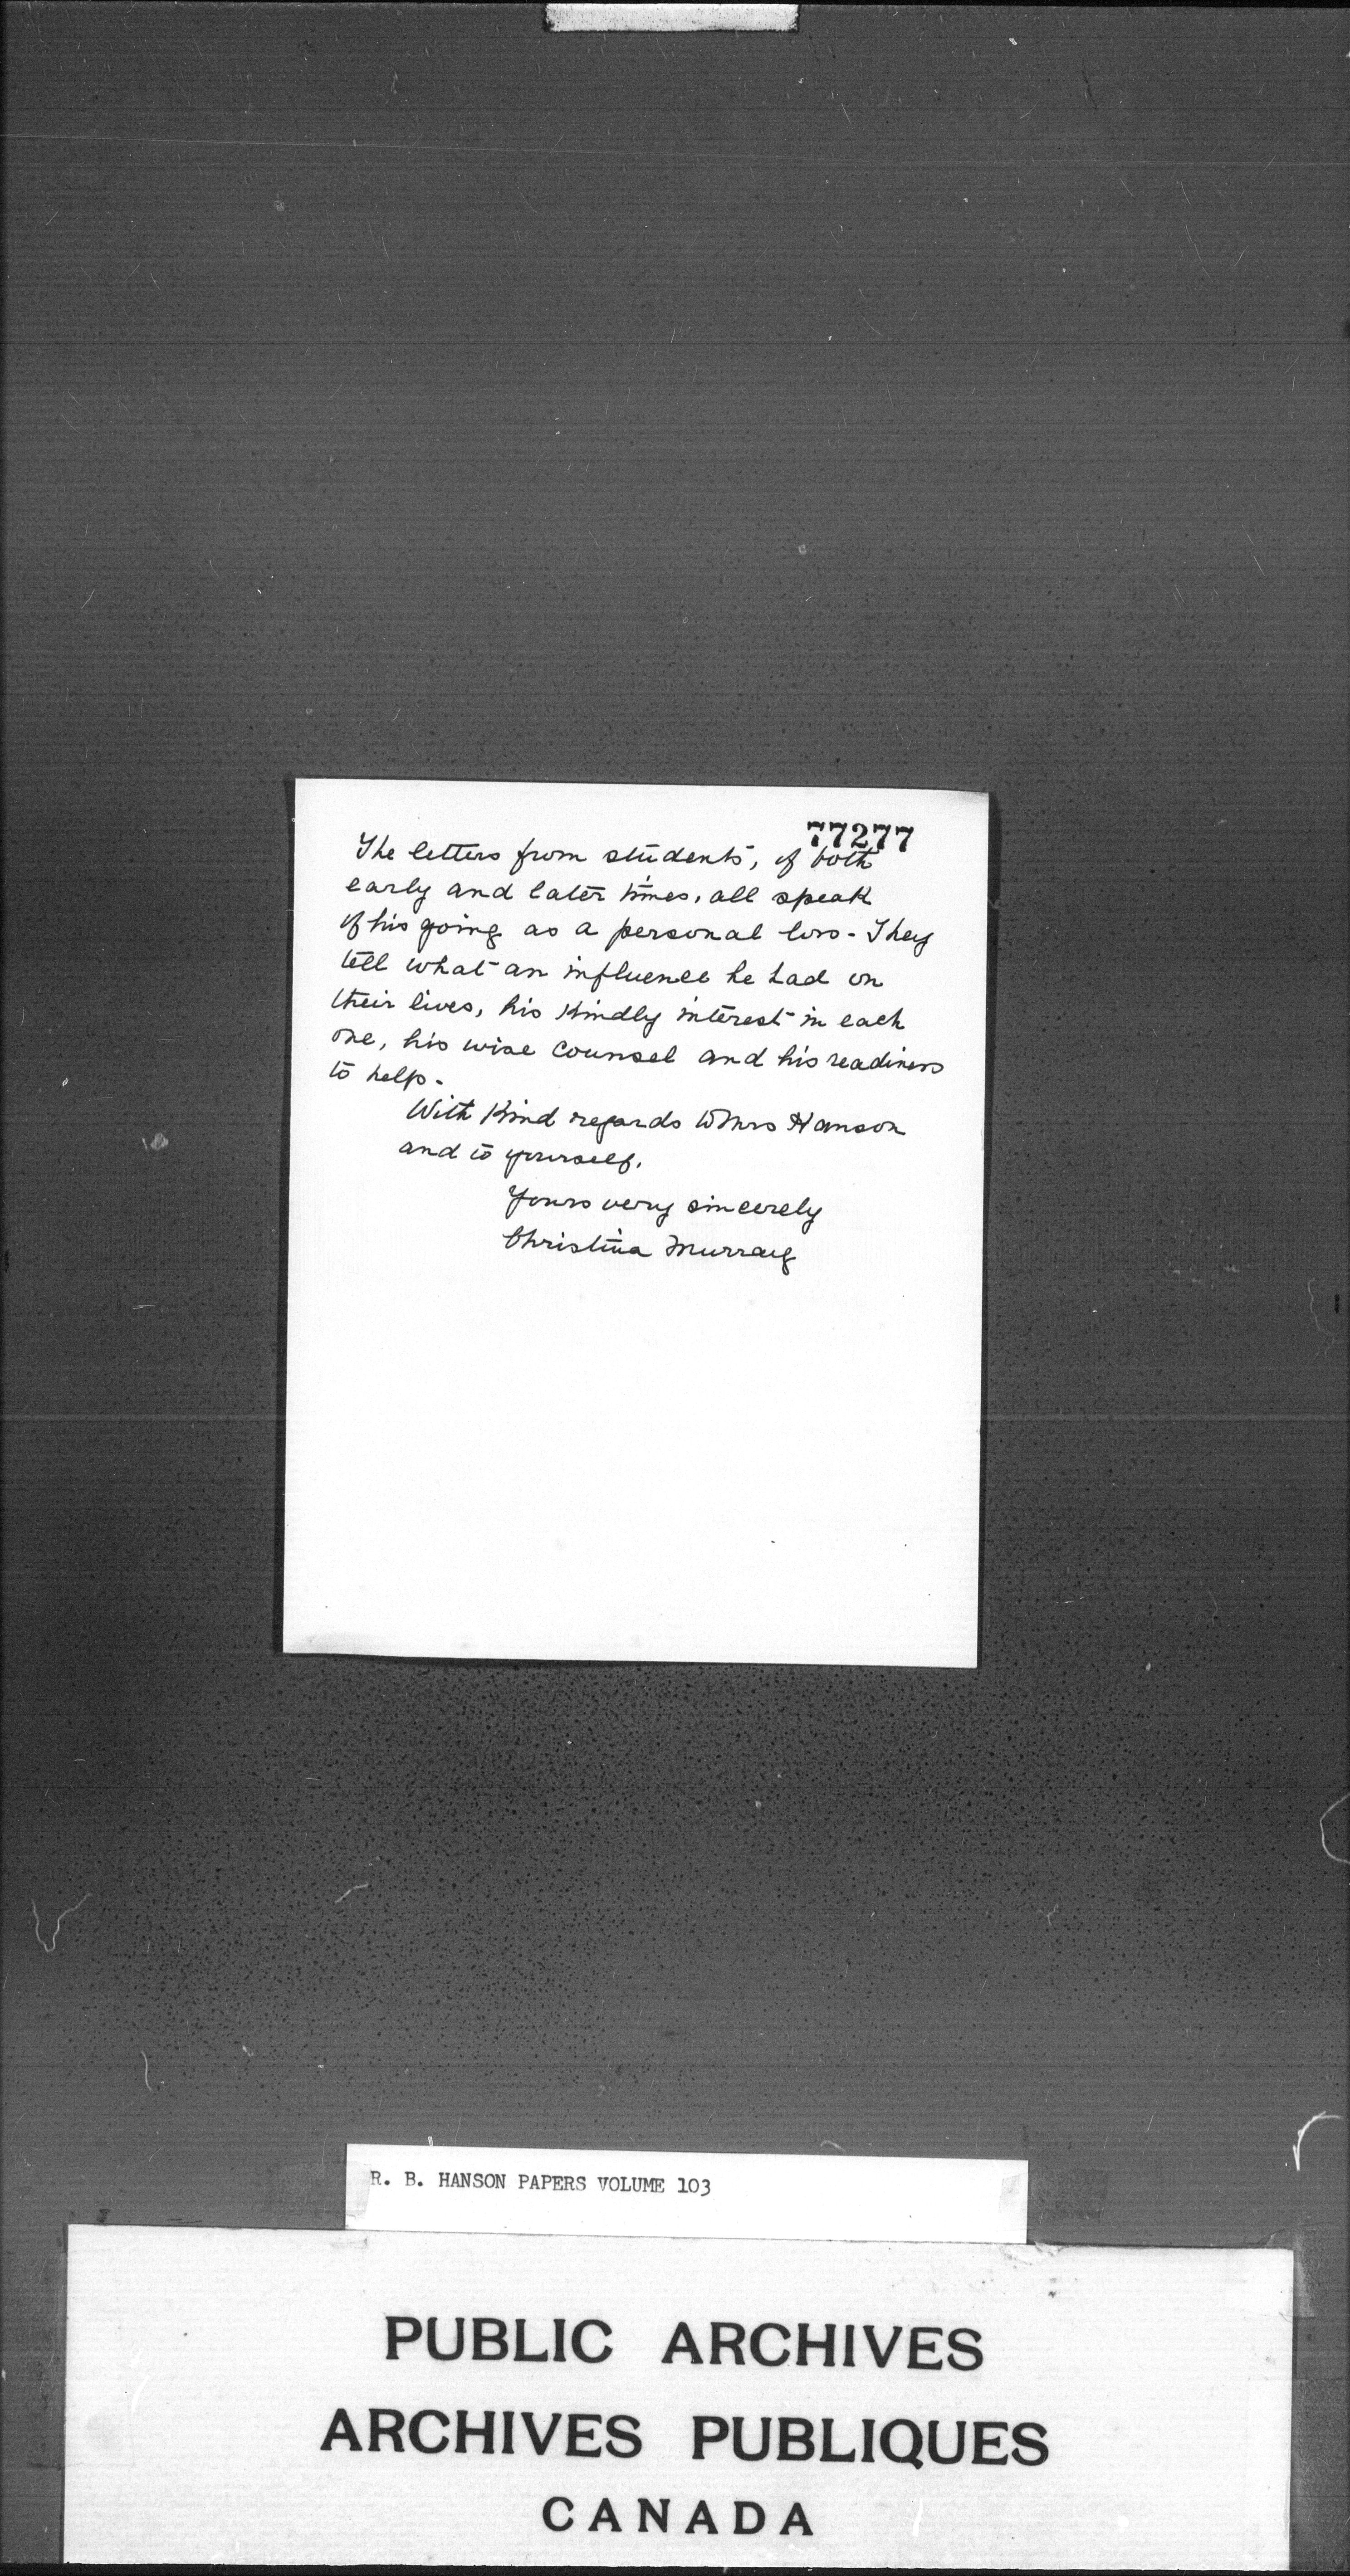 77277
The letters from students, of both
early and later times, all speak
of his going as a personal loss. They
tell what an influence he had on
their lives, his kindly interest in each
one, his wise counsel and his readiness
to help.
With kind regards to Mrs Hanson
and to yourself.
Yours very sincerely
Christina Murray
R. B. HANSON PAPERS VOLUME 103
PUBLIC ARCHIVES
ARCHIVES PUBLIQUES
CANADA